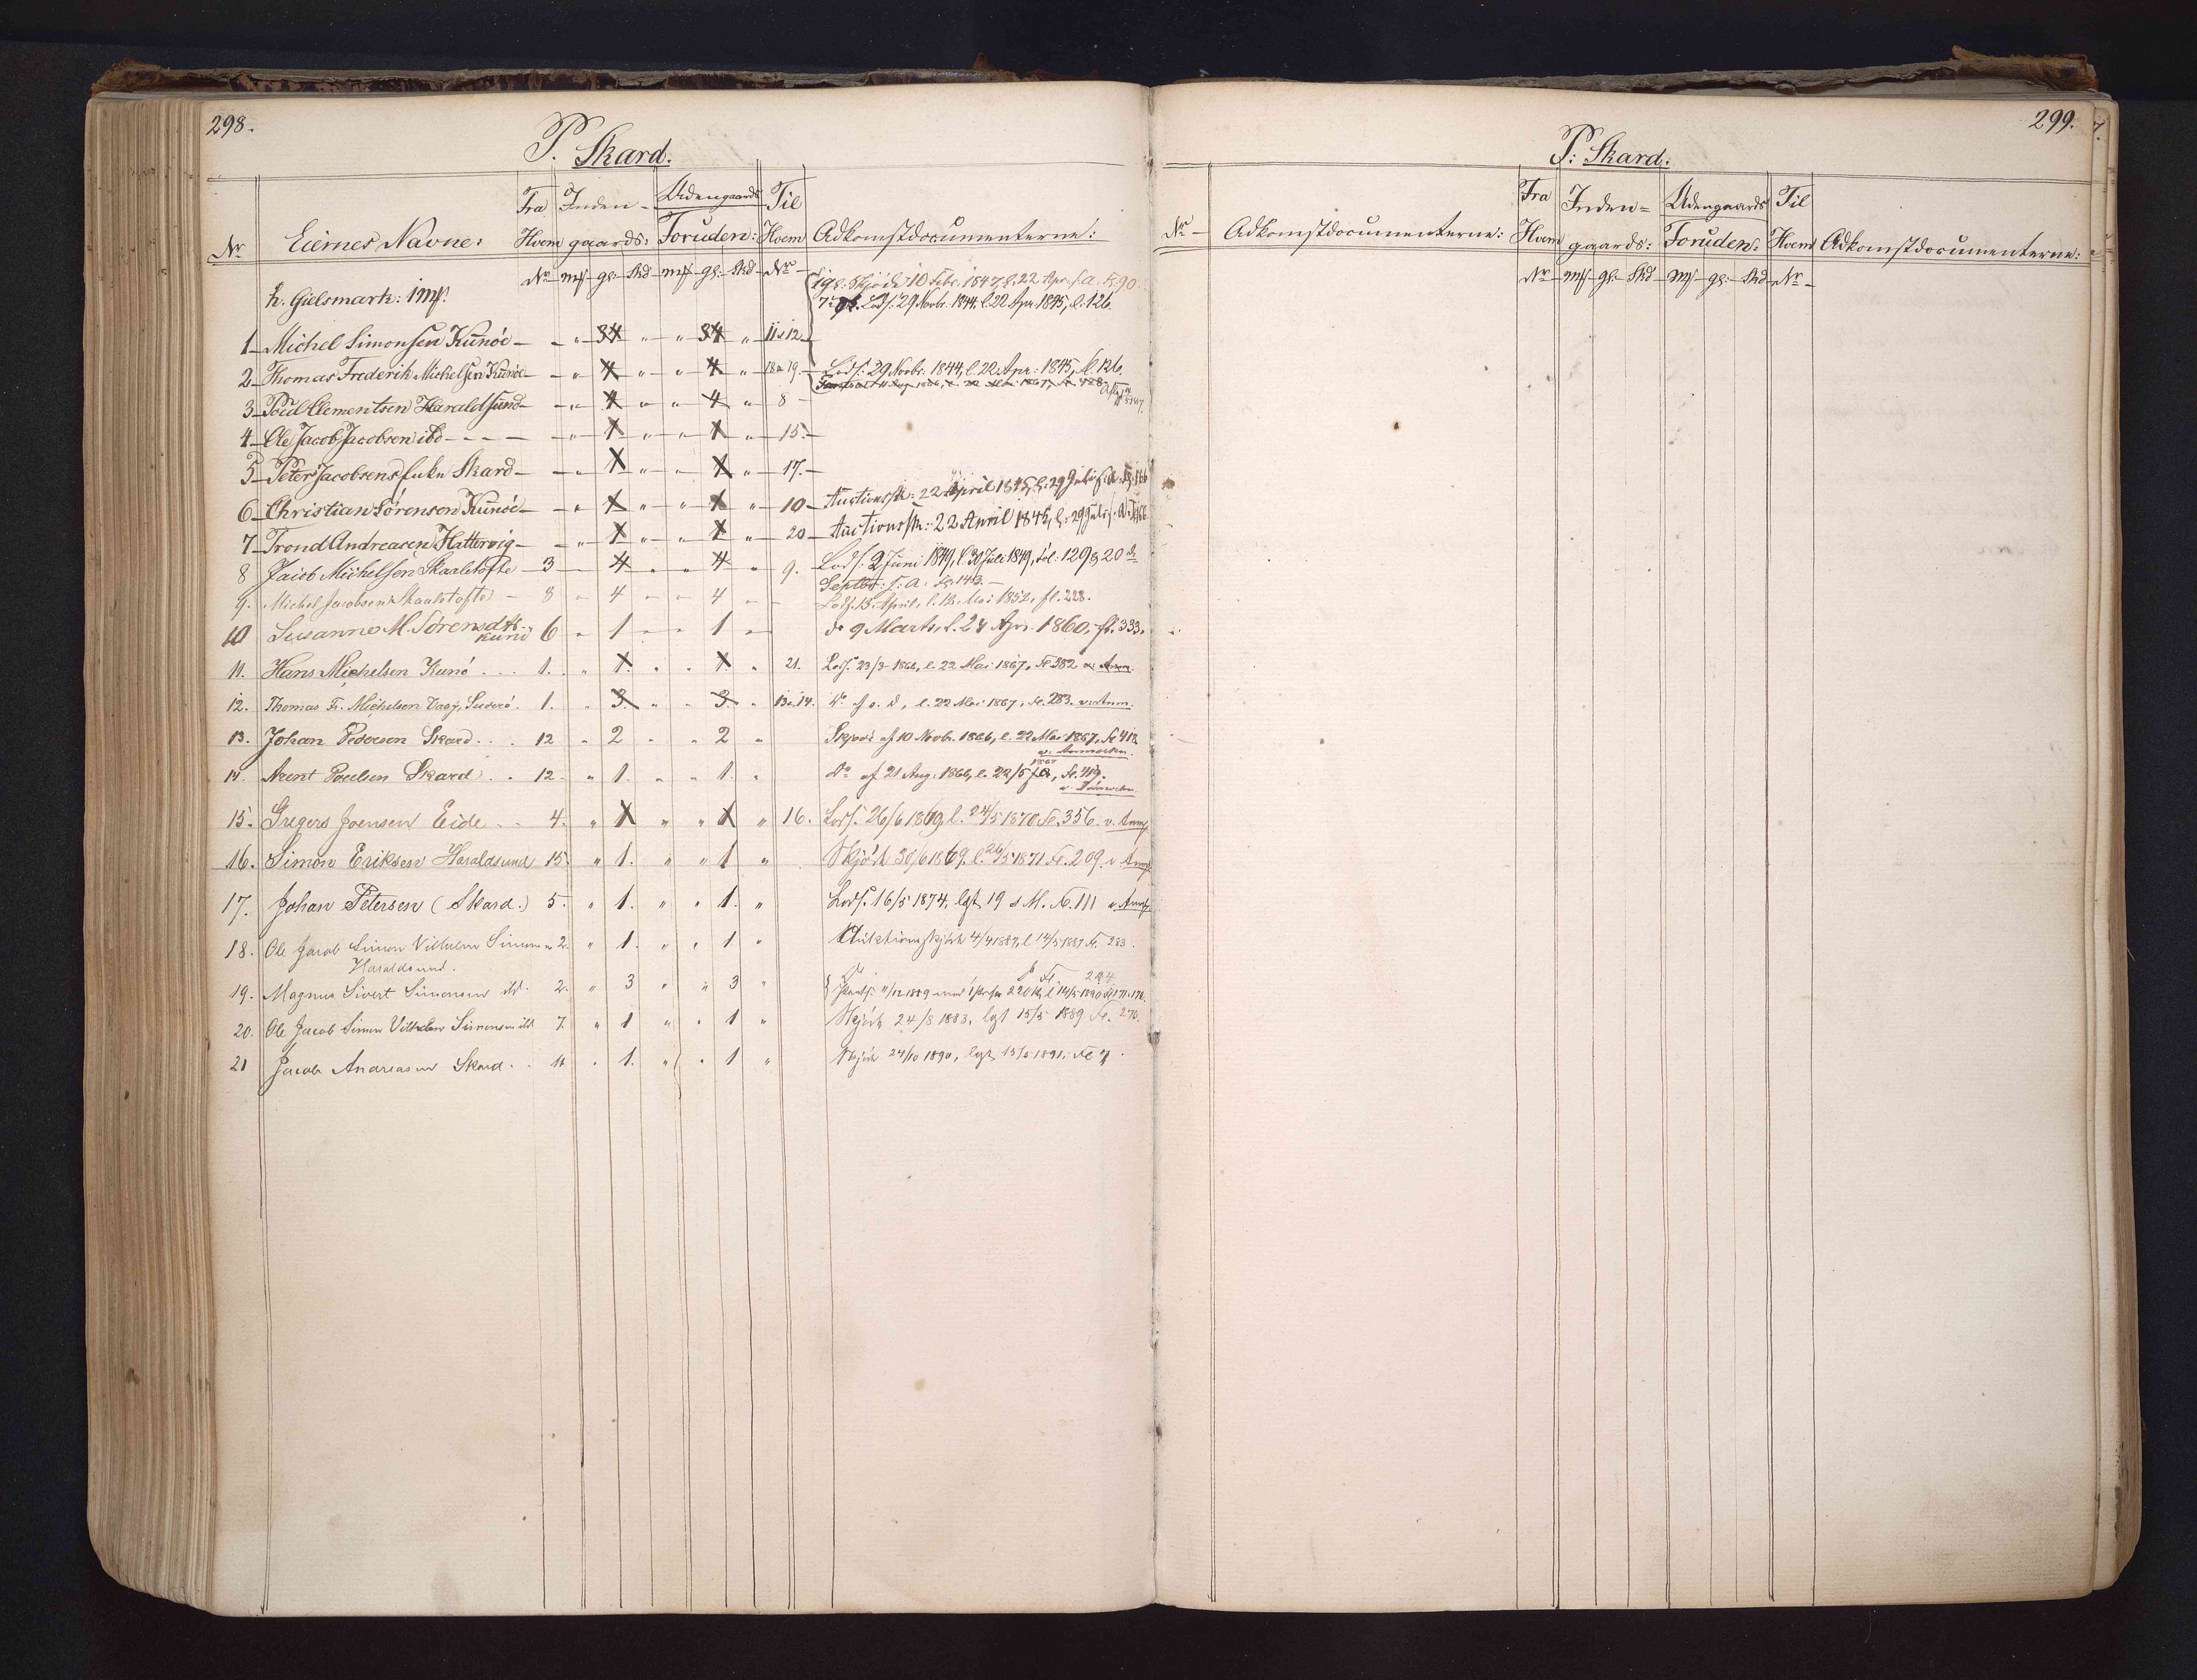 298.
P. Skard.
Nr Eiernes Navne: Fra Hvem Inden-gaards: Udengaards Foruden: Til Hvem Adkomstdocumenterne:
Nr mk gl. Skd mk gl. Skd Nr
h. Gielsmark: 1 mk.
1gl. Skjöde 10 Febr. 1847, l. 22 Apr. s.a. Fo. 90.
Lods. 29 Novbr. 1844, l. 22 Apr. 1845, fl. 126.
1 Michel Simonsen Kunöe - " 4 " " 4 " 11 & 12
2 Thomas Frederik Michelsen Kunöe - " 4 " " 4 " 18 & 19. Lods. 29 Novbr. 1844, l. 22 Apr. 1845, fl. 126.
3 Poul Clementsen Haraldsund - " 4 " " 4 " 8
4 Ole Jacob Jacobsen ibd - " 1 " " 1 " 15.
5 Peter Jacobsens Enke Skard - " 1 " " 1 " 17.
6 Christian Sörensen Kunöe - " 1 " " 1 " 10 Auctionssk: 22 April 1845, l. 29 Juli s.a. Fo. 166
7 Trond Andreasen Hattervig - " 1 " " 1 " 20 Auctionssk: 22 April 1845, l. 29 Juli s.a. Fo. 166
8 Jacob Michelsen Skaaletofte 3 - 4 " " 4 " 9. Lods: 2 Juni 1849, l. 30 Juli 1849, fol. 129 & 20de
Septbr: s. a. fo. 143.
9. Michel Jacobsen Skaaletofte 8 " 4 - - 4 - Lods. 15 April, l. 12 Mai 1852, fl. 228.
10 Susanne M. Sörensdtr. Kunö 6 " 1 - - 1 - do 9 Marts, l. 27 Apr. 1860, fl. 333.
11. Hans Michelsen Kunö . . . 1. " 1. " " 1. " 21. Lods. 23/3 1866, l. 22 Mai 1867, Fo. 382 v. Anm.
12. Thomas Fr. Michelsen Vaag, Suderö. 1. " 3. " " 3. " 13 & 14. Do af s. D, l. 22 Mai 1867, Fo. 283. v. Anm.
13. Johan Pedersen Skard . . . 12 " 2 " " 2 " Skjøde af 10 Novbr. 1866, l. 22 Mai 1867, Fo 418
v. Anmærkn.
14. Arent Poulsen Skard . . 12 " 1. " " 1. " Do af 21 Aug. 1866, l. 22/5 1867, Fo. 419.
v. Anmærkn.
15. Gregers Joensen Eide . . 4. " 1 " " 1 " 16. Lods. 26/6 1869 l. 24/5 1870 Fo. 356. v. Anm.
16. Simon Eriksen Haraldsund 15. " 1. " " 1 " Skjöd 30/6 1869. l. 26/5 1871 Fo. 209. v Anm.
17. Johan Petersen (Skard.) 5. " 1. " " 1. " Lods. 16/5 1874, lgt. 19 s M. Fo. 111 v. Anm.
18. Ole Jacob Simon Vilhelm Simonsen 2. " 1. " " 1 " Auktionsskjöde 4/4 1887, l 14/5 1887 Fo. 283.
Haraldsund.
19. Magnus Sivert Simonsen ibd. 2. " 3 " " 3 " Do Fo. 284
11/12 1889 l 14/5 1890
20. Ole Jacob Simon Vilhelm Simonsen ibd 7. " 1 " " 1 " Skjöde 24/8 1883, lgt 15/5 1889 Fo. 270.
21 Jacob Andreasen Skard . . 11 " 1. " " 1 " Skjöde 24/10 1890, lgt. 15/5 1891, Fo 7.
299.
P: Skard.
Nr Adkomstdocumenterne: Fra Hvem Inden=gaards: Udengaards Foruden: Til Hvem Adkomstdocumenterne:
Nr mk gl. Skd mk gl. Skd Nr